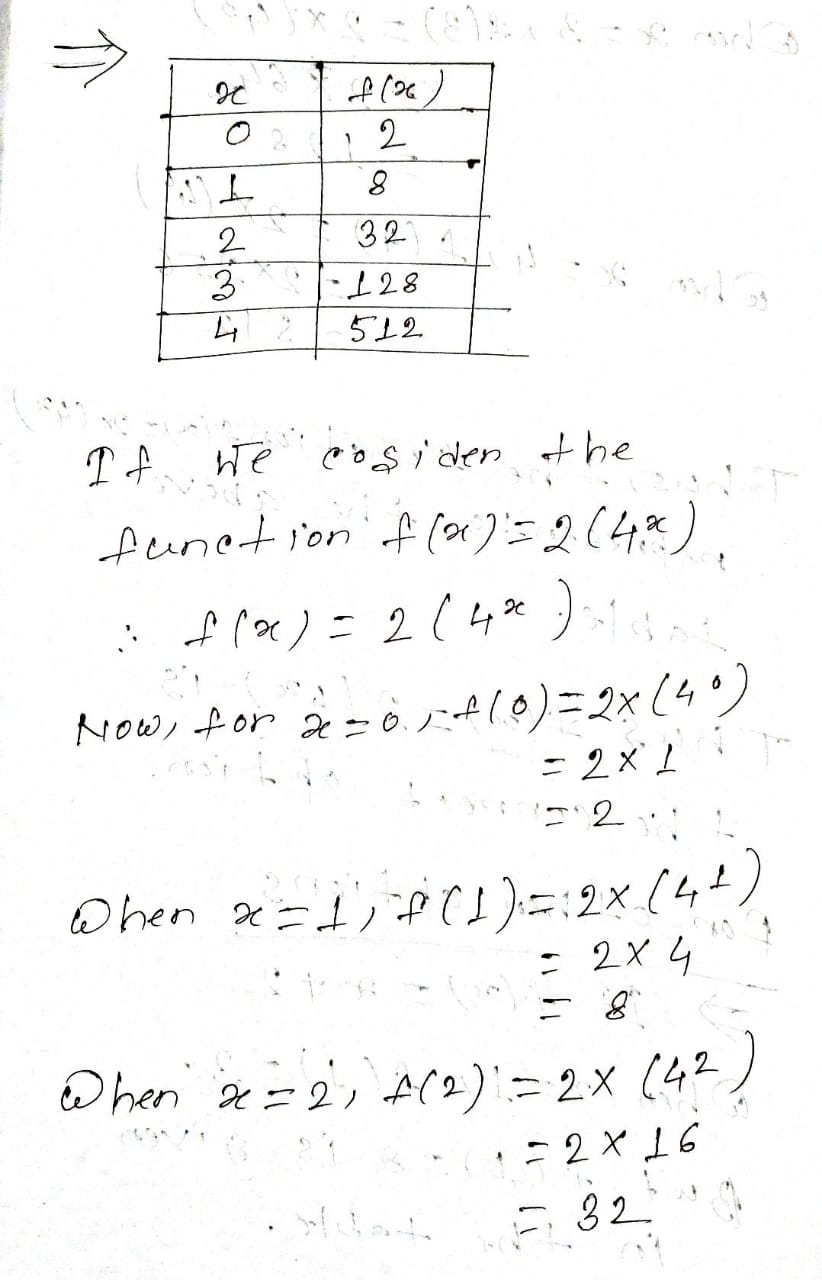 ⇒
x f(x)
0 2
1 8
2 32
3 128
4 512
If We cosider the
function f(x)=2(4ˣ)
∴ f(x) = 2(4ˣ)
Now, for x=0, f(0)=2×(4⁰)
= 2×1
= 2
When x=1, f(1)=2×(4¹)
= 2×4
= 8
When x=2, f(2)=2×(4²)
= 2×16
= 32